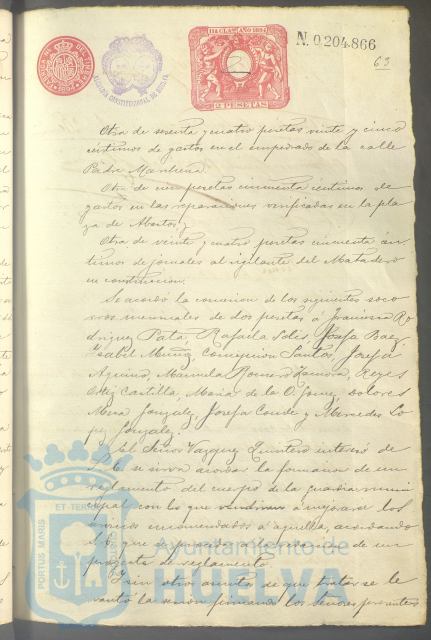 11ª CLASE AÑO 1894
2 PESETAS
N. 0.204.866
63
Otra de sesenta y cuatro pesetas veinte y cinco
céntimos de gastos en el empedrado de la calle
Padre Marchena.
Otra de cien pesetas cincuenta céntimos de
gastos en las reparaciones verificadas en la pla
za de Abastos y
Otra de veinte y cuatro pesetas cincuenta cén
timos de jornales al vigilante del Matadero
en construccion.
Se acordó la concesion de los siguientes soco
rros mensuales de dos pesetas á Francisca Ro
driguez Pata, Rafaela Solis, Josefa Baez
Isabel Muñiz, Concepcion Santos, Josefa
Aquino, Manuela Romero Zamora, Reyes
Ortiz Castilla, Maria de la O. Gomez, Dolores
Mora Gonzalez, Josefa Conde y Mercedes Lo
pez Gonzalez.
El Señor Vazquez Quintero interesó de
S. E. se sirva acordar la formacion de un
reglamento del cuerpo de la guardia muni
cipal con los que vendrian a mejorarse los
servicios encomendados á aquella, acordando
S. E. que se proceda á la de un
proyecto de reglamento.
Y sin otros asuntos de que tratar se le
vantó la sesion firmando los señores presentes
PORTUS MARIS
ET TERRAE
Ayuntamiento de
HUELVA